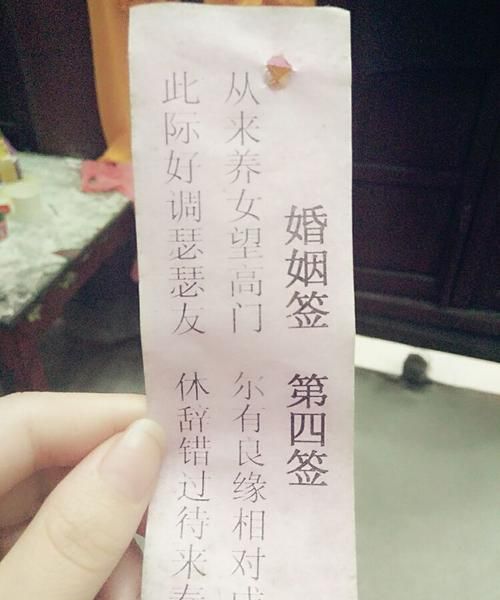 婚姻签 第四签
从来养女望高门 尔有良缘相对
此际好调瑟瑟友 休辞错过待来